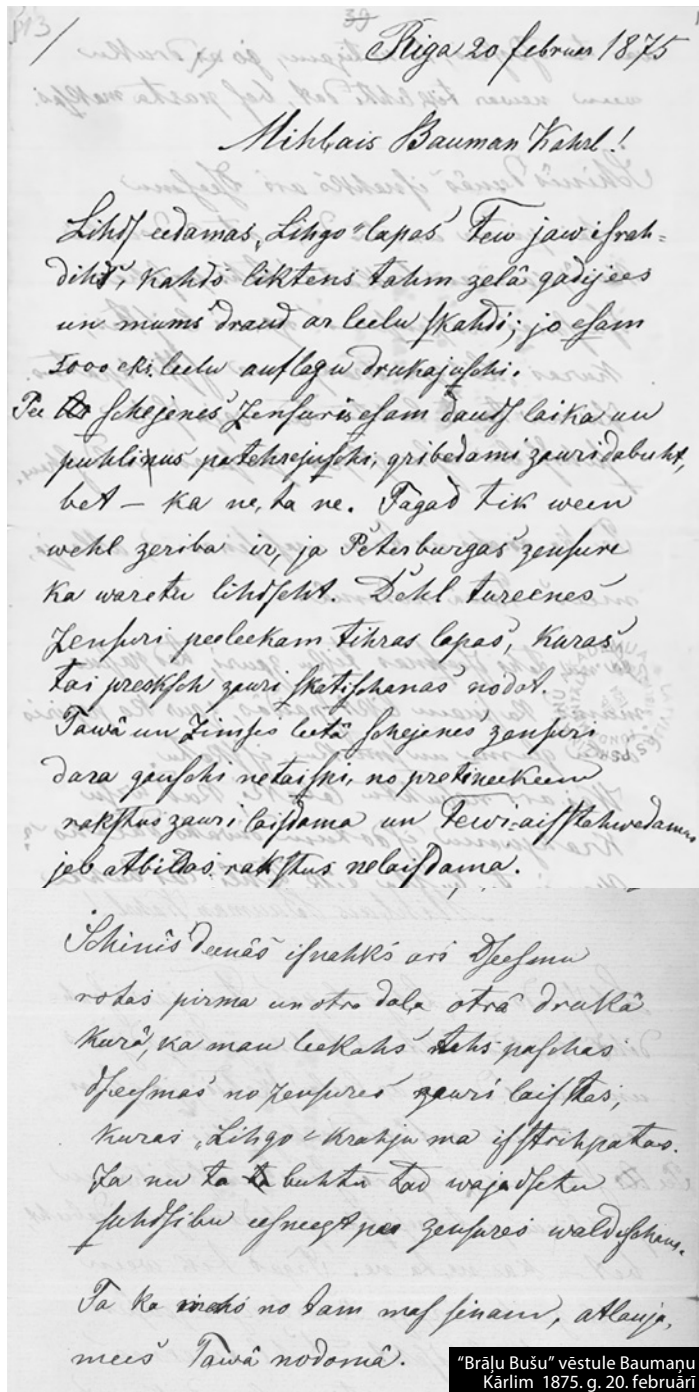 113
39
Riga 20 februar 1875
Mihlais Bauman Kahrl!
Lihds eedamas „Lihgo" lapas Tew jaw israh-
dihs, kahds liktens tahm zelâ gadijees
un mums draud ar leelu skahdi; jo esam
5000 eks. leelu auflagu drukajuschi.
Pee schejenes Zensuris esam daudz laika un
puhlinus patehrejuschi, gribedami zauri dabuht,
bet — ka ne, ta ne. Tagad tik ween
wehl zeriba ir, ja Peterburgas zensure
ka waretu lihdseht. Dehl tureenes
Zensuri peeleekam tihras lapas, kuras
tai preeksch zauri skatischanas nodot.
Tawâ un Zimses leetâ schejenes zensuri
dara gauschi netaisni, no pretineekeem
rakstus zauri laisdama un Tewi aisstahwedamus
jeb atbildas rakstus nelaisdama.
Schinîs deenâs isnahks ari Dseesmu
rotas pirma un otra dala otrâ drukâ
kurâ, ka man leekahs tahs paschas
dseesmas no zensures zauri laistas,
kuras „Lihgo" krahjumâ isstrihpatas.
Ja nu ta buhtu tad wajadsetu
suhdsibu eesneegt pee zensures waldischanas.
Ta ka mehs no tam mas sinam, atlauja,
mees Tawâ nodomâ.
"Brāļu Bušu" vēstule Baumaņu
Kārlim 1875. g. 20. februārī